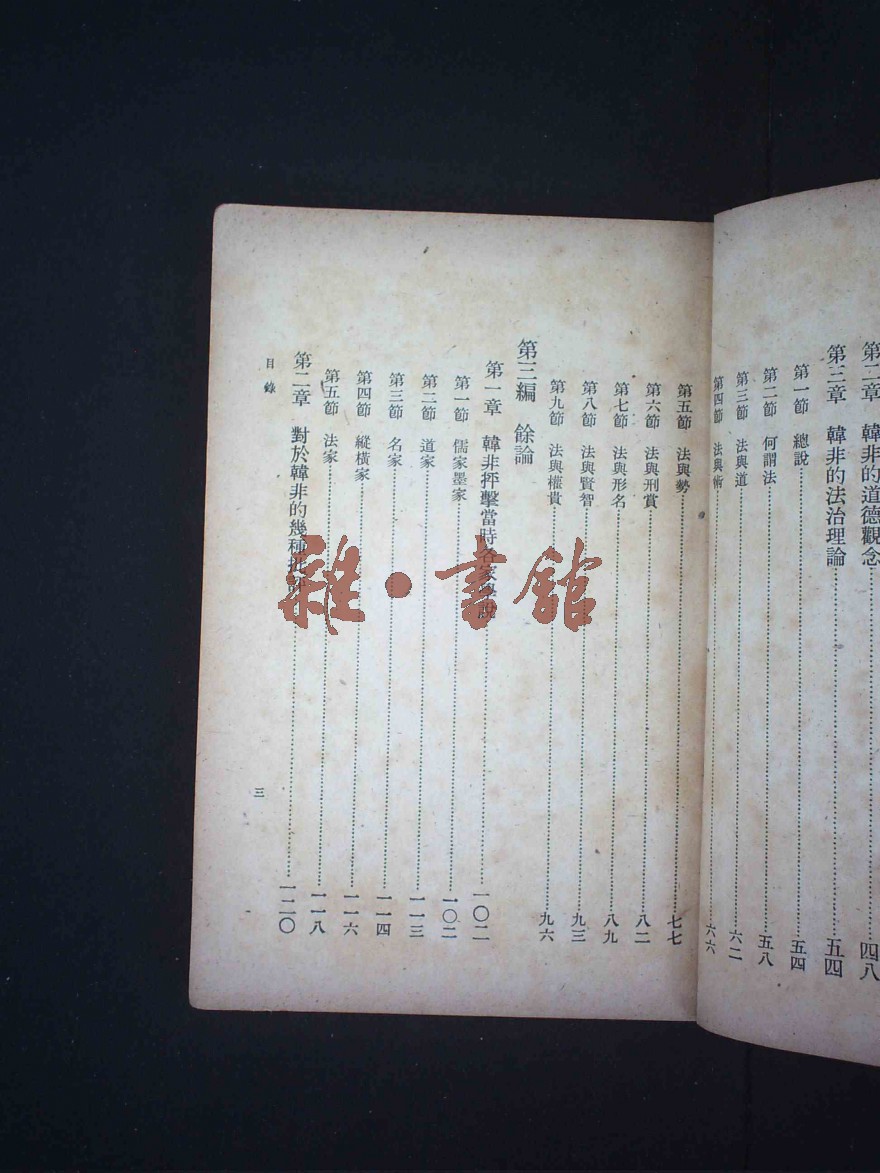 第二章　韓非的道德觀念⋯⋯四八
第三章　韓非的法治理論⋯⋯五四
第一節　總說⋯⋯五四
第二節　何謂法⋯⋯五八
第三節　法與道⋯⋯六二
第四節　法與術⋯⋯六六
第五節　法與勢⋯⋯七七
第六節　法與刑賞⋯⋯八二
第七節　法與形名⋯⋯八九
第八節　法與賢智⋯⋯九三
第九節　法與權貴⋯⋯九六
第三編　餘論
第一章　韓非抨擊當時各家學說⋯⋯一〇二
第一節　儒家墨家⋯⋯一〇二
第二節　道家⋯⋯一一三
第三節　名家⋯⋯一一四
第四節　縱橫家⋯⋯一一六
第五節　法家⋯⋯一一八
第二章　對於韓非的幾種批⋯⋯一二〇
目錄
三
雜·書館